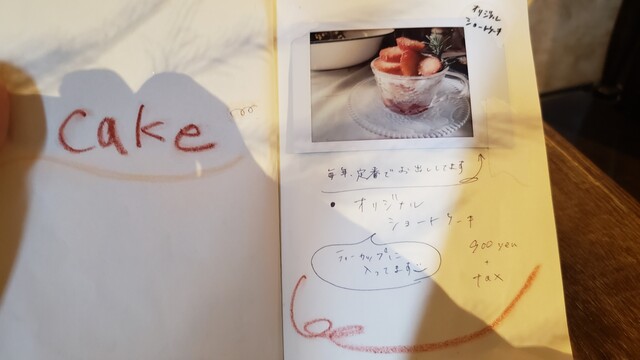 cake
オリジナル
ショートケーキ
毎年、定番でお出ししてます
• オリジナル
ショートケーキ
ティーカップに
入ってます
900 yen
+
tax